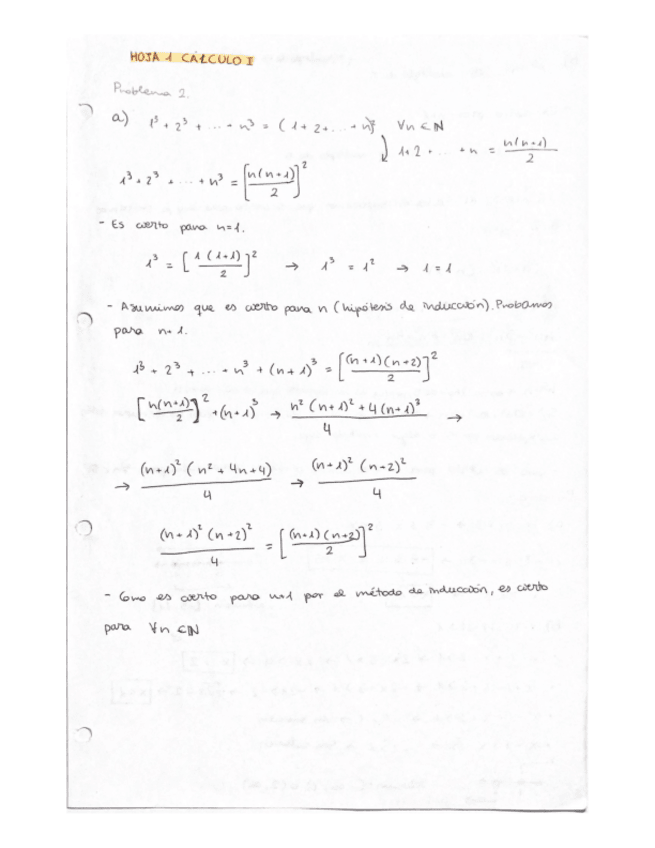 HOJA 1 CÁLCULO I
Problema 2.
a) 1³ + 2³ + ... + n³ = (1+2+...+n)² ∀n ∈ ℕ
1+2+...+n = n(n+1)/2
1³+2³ + ... + n³ = [n(n+1)/2]²
- Es cierto para n=1.
1³ = [1(1+1)/2]² → 1³ = 1² → 1=1
- Asumimos que es cierto para n (hipótesis de inducción). Probamos
para n+1.
1³ + 2³ + ... + n³ + (n+1)³ = [(n+1)(n+2)/2]²
[n(n+1)/2]² + (n+1)³ → n²(n+1)²+4(n+1)³/4 →
→ (n+1)²(n²+4n+4)/4 → (n+1)²(n+2)²/4
(n+1)²(n+2)²/4 = [(n+1)(n+2)/2]²
- Como es cierto para n+1 por el método de inducción, es cierto
para ∀n ∈ ℕ